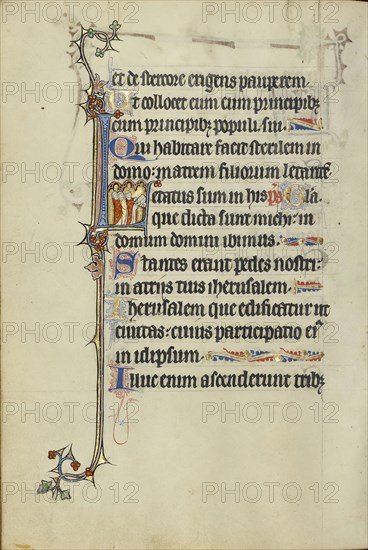 et de stercore erigens pauperem.
Ut collocet eum cum principibꝫ
cum principibꝫ populi sui.
Qui habitare facit sterilem in
domo: matrem filiorum letantē
Letatus sum in his ps̄ Gl̄a.
que dicta sunt michi: in
domum domini ibimus.
Stantes erant pedes nostri:
in atrijs tuis iherusalem.
Iherusalem que edificatur ut
ciuitas: cuius participatio eiꝰ
in idipsum.
Iluc enim ascenderunt tribꝫ
PHOTO 12